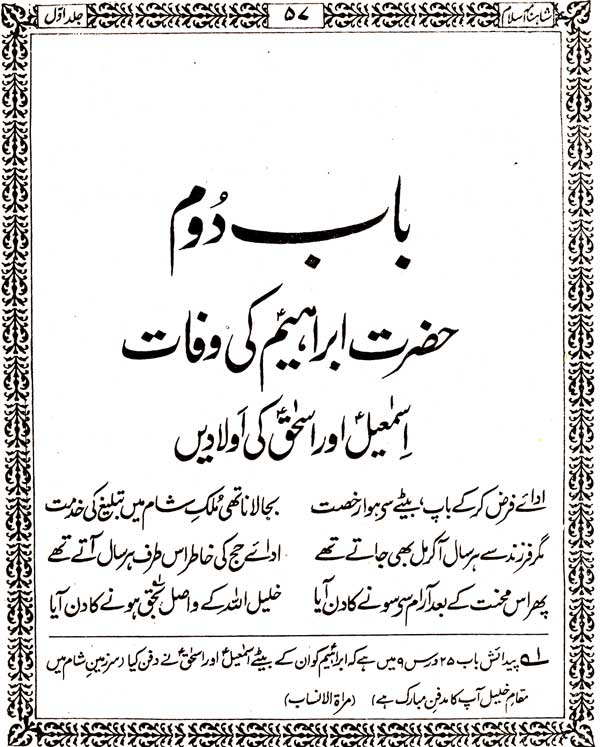 شاہنامہ اسلام ۵۷ جلد اوّل
باب دُوم
حضرت ابراہیمؑ کی وفات
اِسمٰعیلؑ اور اسحٰقؑ کی اَولادیں
ادائے فرض کر کے باپ، بیٹے سی ہوا رخصت بجا لانا تھی مُلکِ شام میں تبلیغ کی خدمت
مگر فرزند سے ہر سال آ کر مل بھی جاتے تھے ادائے حج کی خاطر اس طرف ہر سال آتے تھے
پھر اس محنت کے بعد آرام سی سونے کا دن آیا خلیل اللہ کے واصل بحق ہونے کا دن آیا
لے پیدائش باب ۲۵ ورس ۹ میں ہے کہ ابراہیمؑ کو ان کے بیٹے اسمٰعیلؑ اور اسحٰقؑ نے دفن کیا (سرزمینِ شام میں
مقامِ خلیل آپ کا مدفنِ مبارک ہے) (مراۃ الانساب)